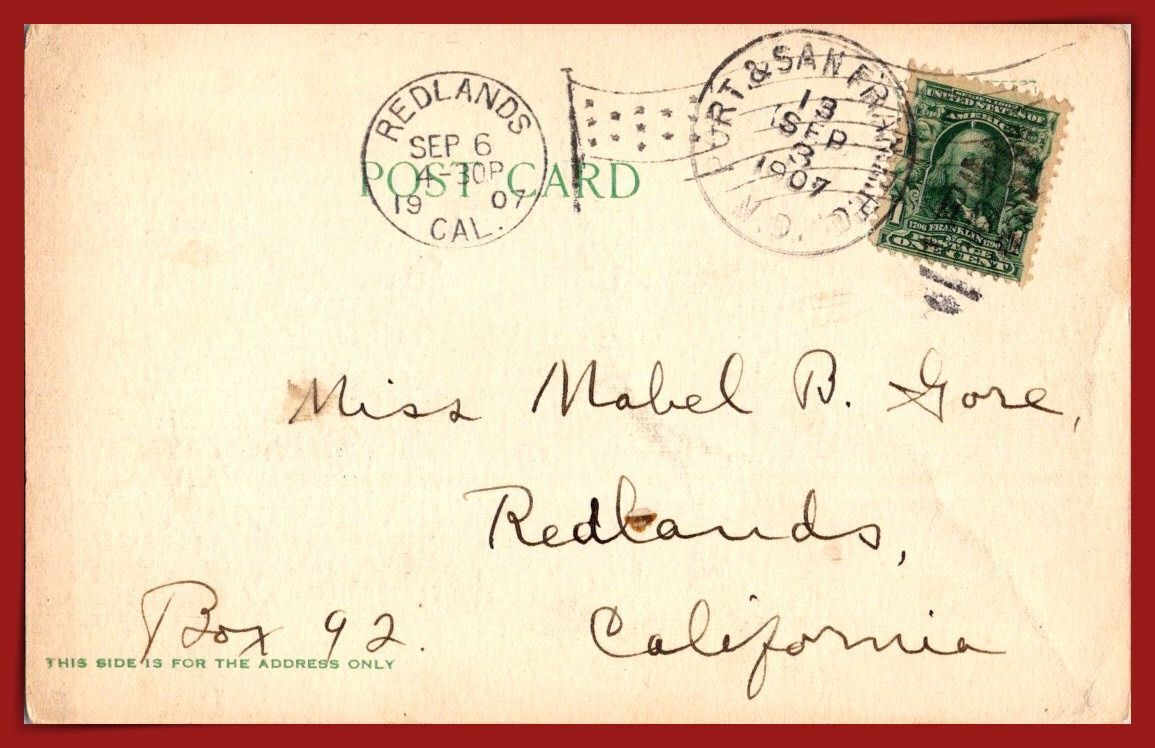 REDLANDS
SEP 6
4-30P
19 07
CAL.
PORT. & SAN FRAN
13
SEP
3
1907
R.P.O.
POST CARD
SERIES 1902
UNITED STATES OF
AMERICA
1 1
1706 FRANKLIN 1790
POSTAGE
ONE CENT
Miss Mabel B. Gore,
Redlands,
California
Box 92.
THIS SIDE IS FOR THE ADDRESS ONLY